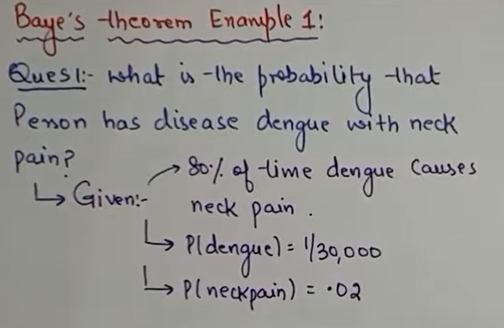 Baye's theorem Example 1:
Ques1:- what is the probability that
Person has disease dengue with neck
pain?
Given:-
80% of time dengue causes
neck pain.
P(dengue) = 1/30,000
P(neckpain) = .02